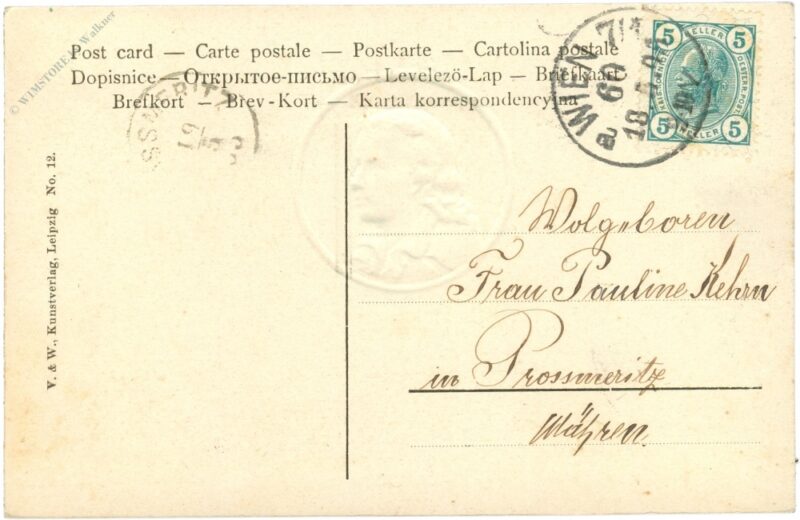 © WIMSTOREM Walkner
Post card — Carte postale — Postkarte — Cartolina postale
Dopisnice — Открытое-письмо — Levelezö-Lap — Briefkaart
Brefkort — Brev-Kort — Karta korrespondencyjna
WIEN
60
18
5 5
HELLER
5 HELLER 5
SSMERITZ
19
V. & W., Kunstverlag, Leipzig No. 12.
Wolgeboren
Frau Pauline Kehrn
in Prossmeritz
Mähren.